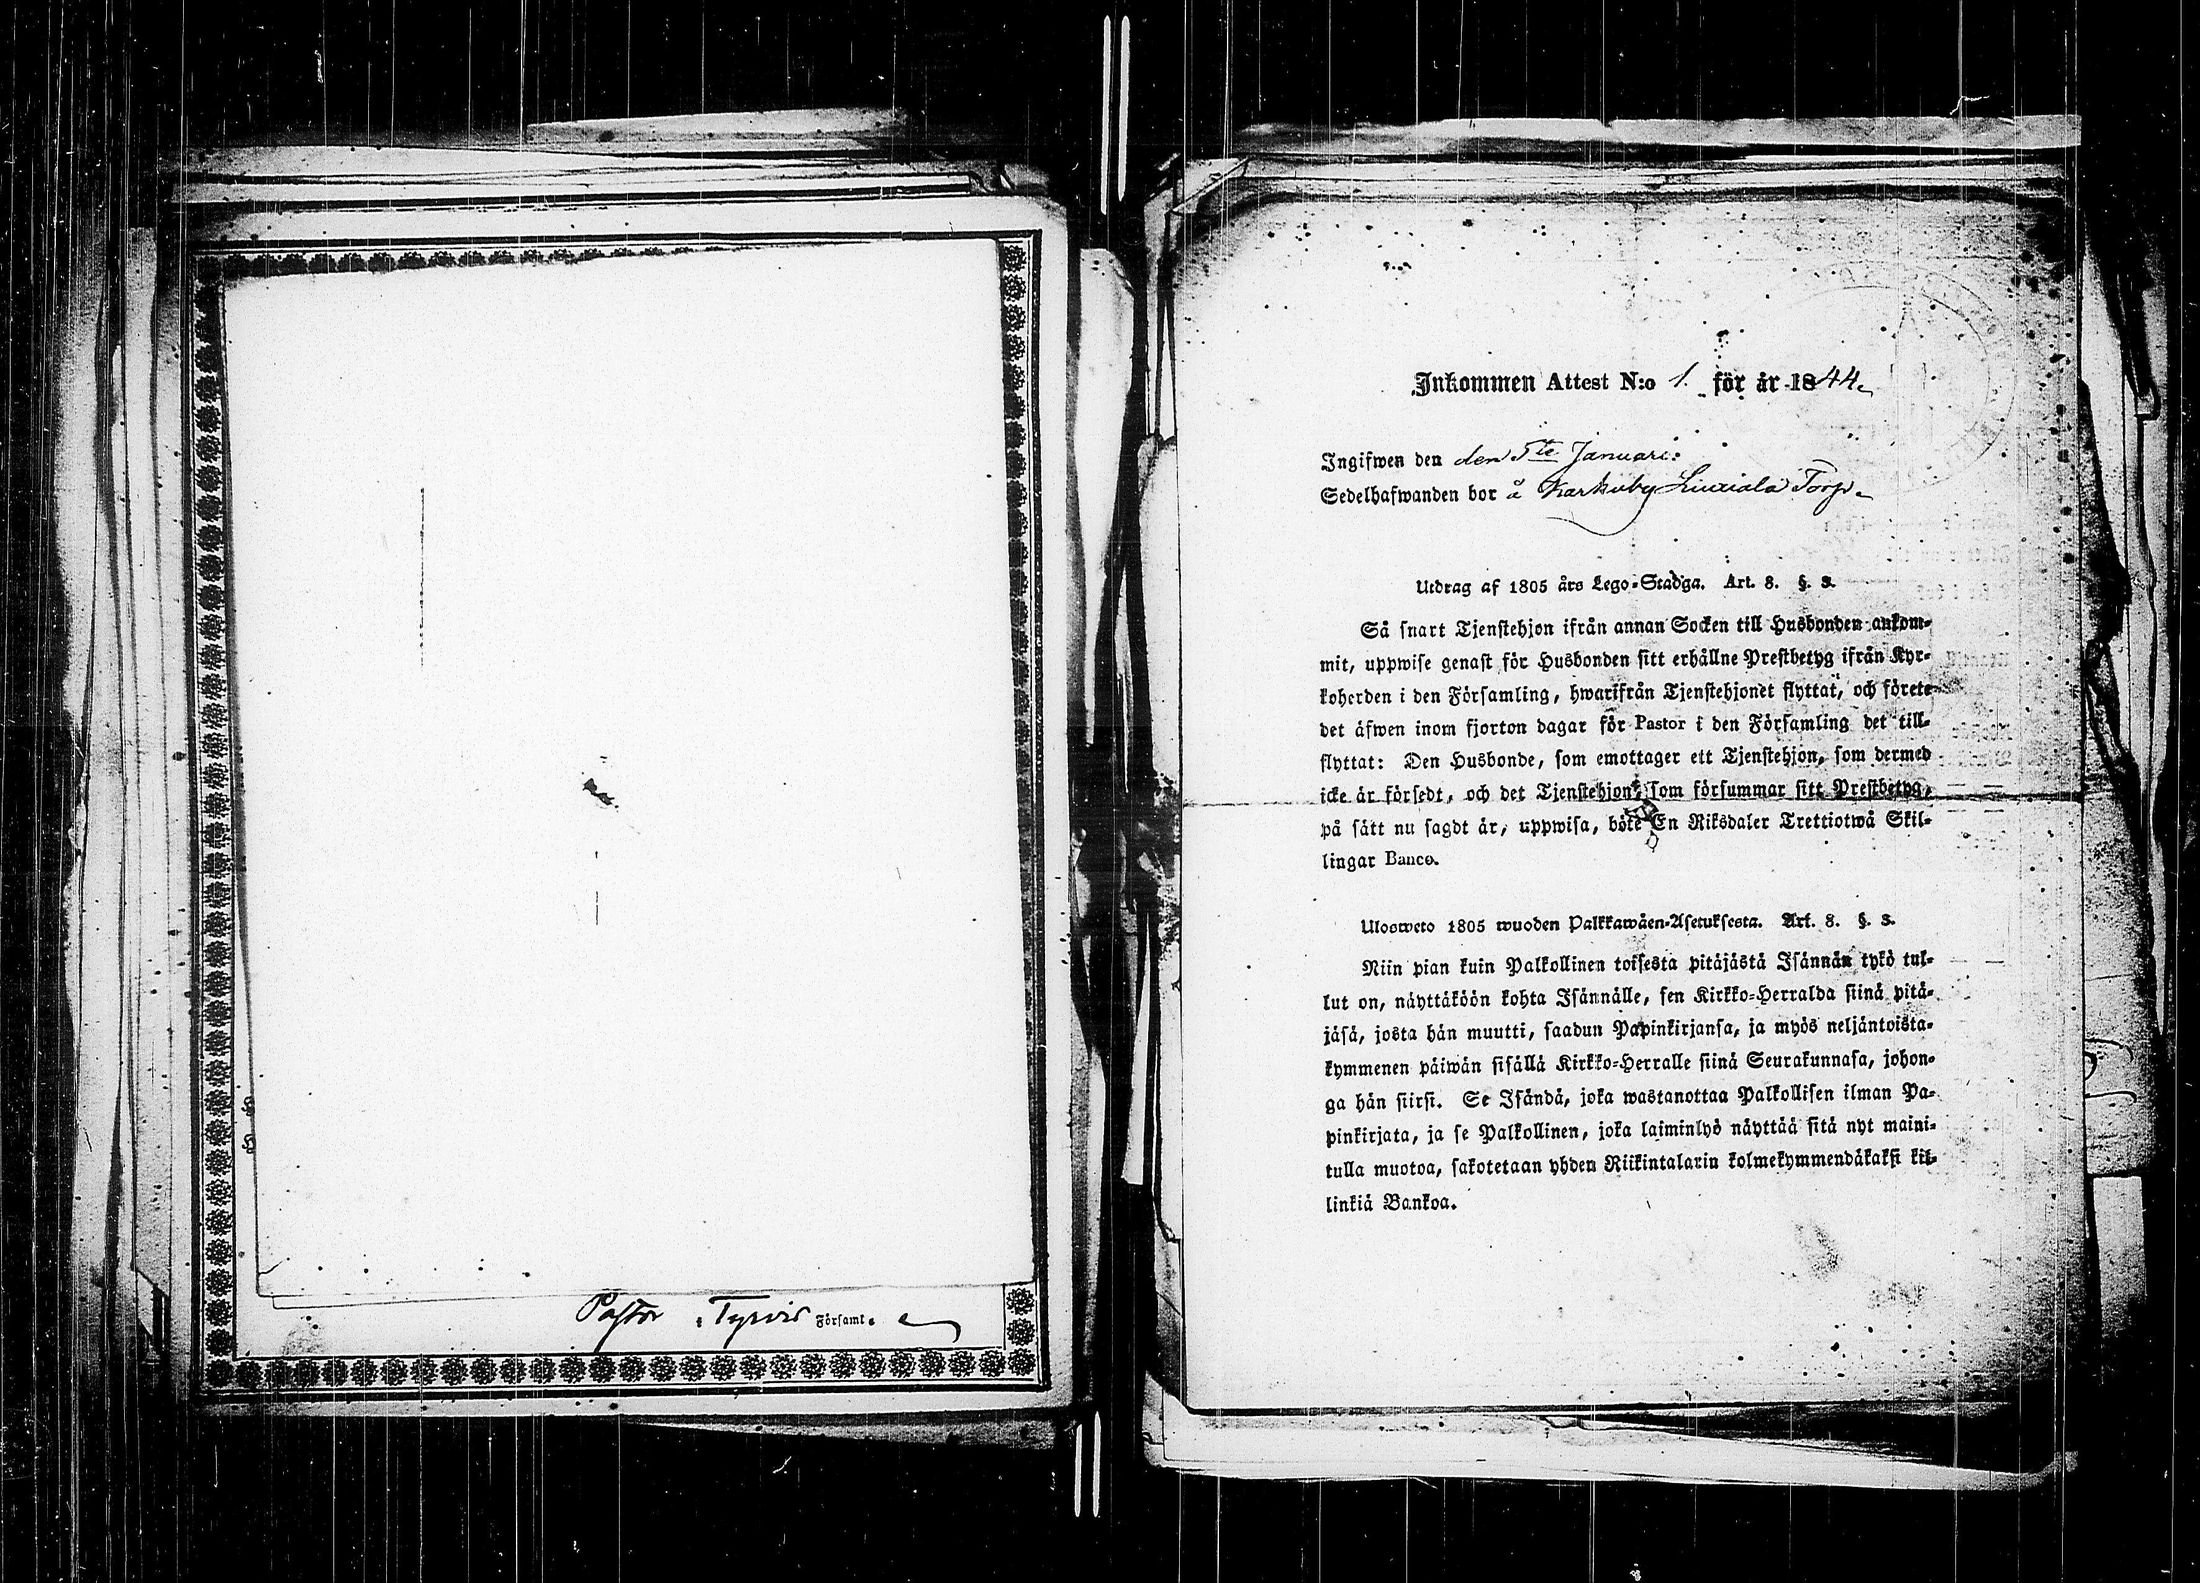 Pastor i Tyrvis Församl.
Inkommen Attest N:o 1. för år 1844.
Ingifwen den den 5te Januari:
Sedelhafwanden bor å Karkuby Liuxiala Torp.
Utdrag af 1805 års Lego-Stadga. Art. 8. §. 3.
Så snart Tjenstehjon ifrån annan Socken till Husbonden ankom-
mit, uppwise genast för Husbonden sitt erhållne Prestbetyg ifrån Kyr-
koherden i den Församling, hwarifrån Tjenstehjonet flyttat, och förete
det äfwen inom fjorton dagar för Pastor i den Församling det till-
flyttat: Den Husbonde, som emottager ett Tjenstehjon, som dermed
icke är försedt, och det Tjenstehjon, som försummar sitt Prestbetyg,
på sätt nu sagdt är, uppwisa, böte En Riksdaler Trettiotwå Skil-
lingar Banco.
Ulosweto 1805 wuoden Palkkawäen-Asetuksesta. Art. 8. §. 3.
Niin pian kuin Palkollinen toisesta pitäjästä Isännän tykö tul-
lut on, näyttäköön kohta Isännälle, sen Kirkko-Herralda siinä pitä-
jäsä, josta hän muutti, saadun Papinkirjansa, ja myös neljäntoista-
kymmenen päiwän sisällä Kirkko-Herralle siinä Seurakunnasa, johon-
ga hän siirsi. Se Isändä, joka wastanottaa Palkollisen ilman Pa-
pinkirjata, ja se Palkollinen, joka laiminlyö näyttää sitä nyt maini-
tulla muotoa, sakotetaan yhden Riikintalarin kolmekymmendäkaksi kil-
linkiä Bankoa.